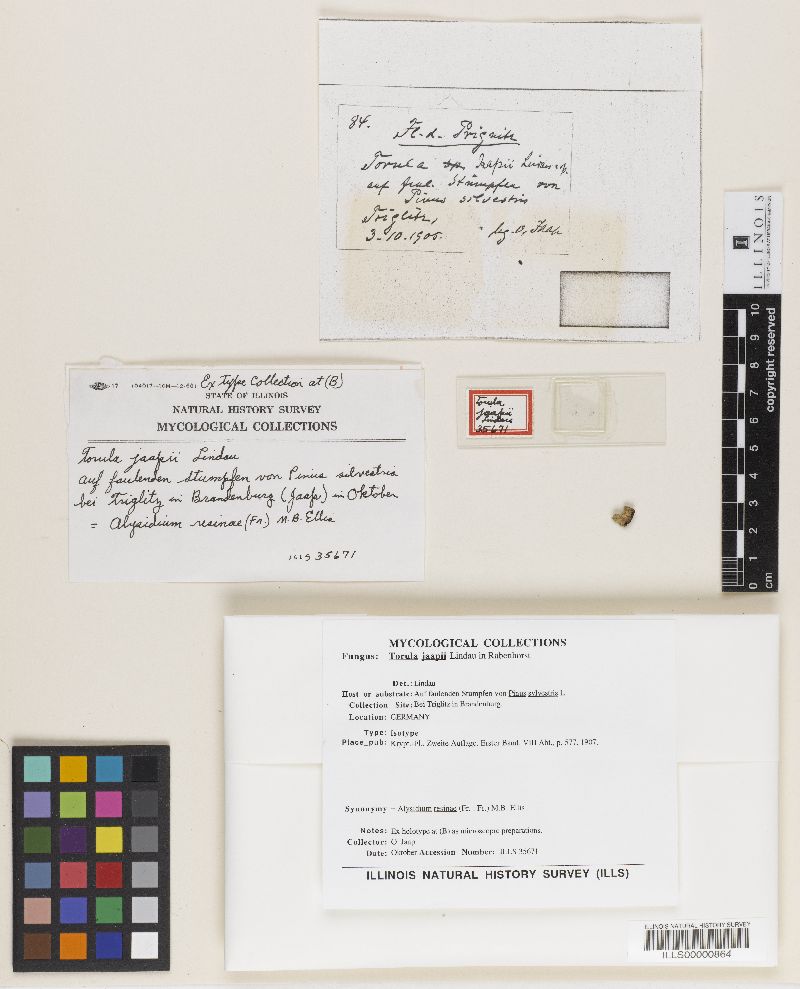 84.
Fl. d. Prignitz
Torula Jaapii Lindau
auf faul. Stümpfen von
Pinus silvestris
Triglitz,
3-10.1905. lg. O. Jaap
Ex Type Collection at (B)
STATE OF ILLINOIS
NATURAL HISTORY SURVEY
MYCOLOGICAL COLLECTIONS
Torula jaapii Lindau
auf faulenden stumpfen von Pinus silvestris
bei Triglitz in Brandenburg (Jaap) in Oktober
= Alysidium resinae (Fr.) M.B. Ellis
ILLS 35671
Torula
jaapii
Lindau
35671
ILLINOIS
copyright reserved
0 1 2 3 4 5 6 7 8 9 10
cm
MYCOLOGICAL COLLECTIONS
Fungus: Torula jaapii Lindau in Rabenhorst
Det.: Lindau
Host or substrate: Auf faulenden Stumpfen von Pinus sylvestris L.
Collection Site: Bei Triglitz in Brandenburg
Location: GERMANY
Type: Isotype
Place_pub: Krypt.-Fl., Zweite Auflage, Erster Band, VIII Abt., p. 577. 1907.
Synonymy = Alysidium resinae (Fr. : Fr.) M.B. Ellis
Notes: Ex holotype at (B) as microscopic preparations.
Collector: O. Jaap
Date: Oktober Accession Number: ILLS 35671
ILLINOIS NATURAL HISTORY SURVEY (ILLS)
ILLINOIS NATURAL HISTORY SURVEY
ILLS00000864